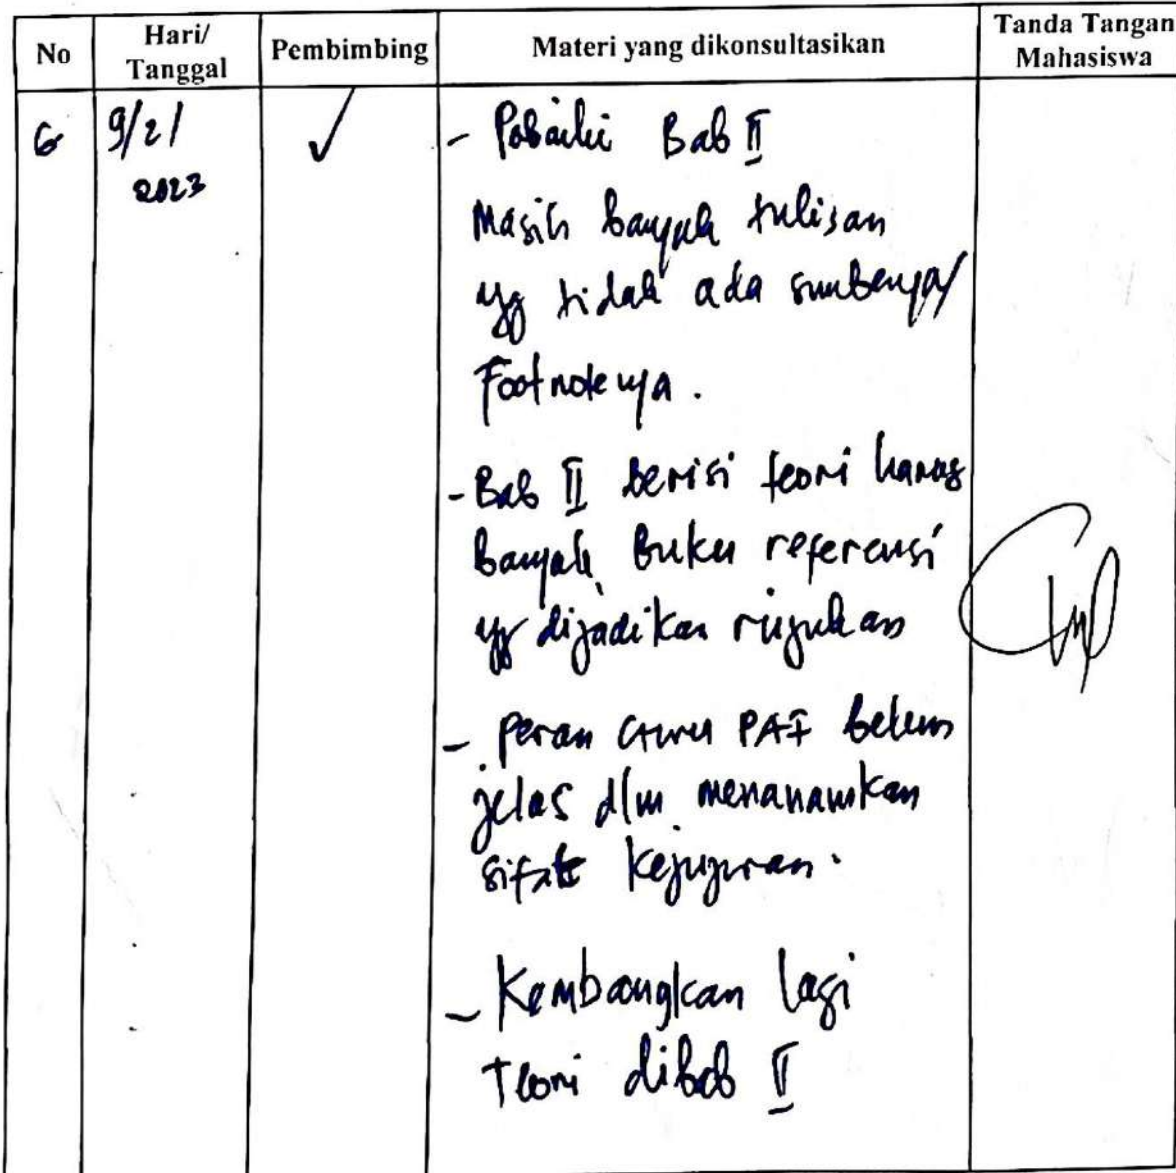 No
Hari/
Tanggal
Pembimbing
Materi yang dikonsultasikan
Tanda Tangan
Mahasiswa
6
9/2/
2023
✓
- Perbaiki Bab II
Masih banyak tulisan
yg tidak ada sumbernya/
Footnotenya.
- Bab II berisi teori harus
banyak buku referensi
yg dijadikan rujukan
- Peran Guru PAI belum
jelas dlm menanamkan
sifat kejujuran.
- Kembangkan lagi
Teori dibab II